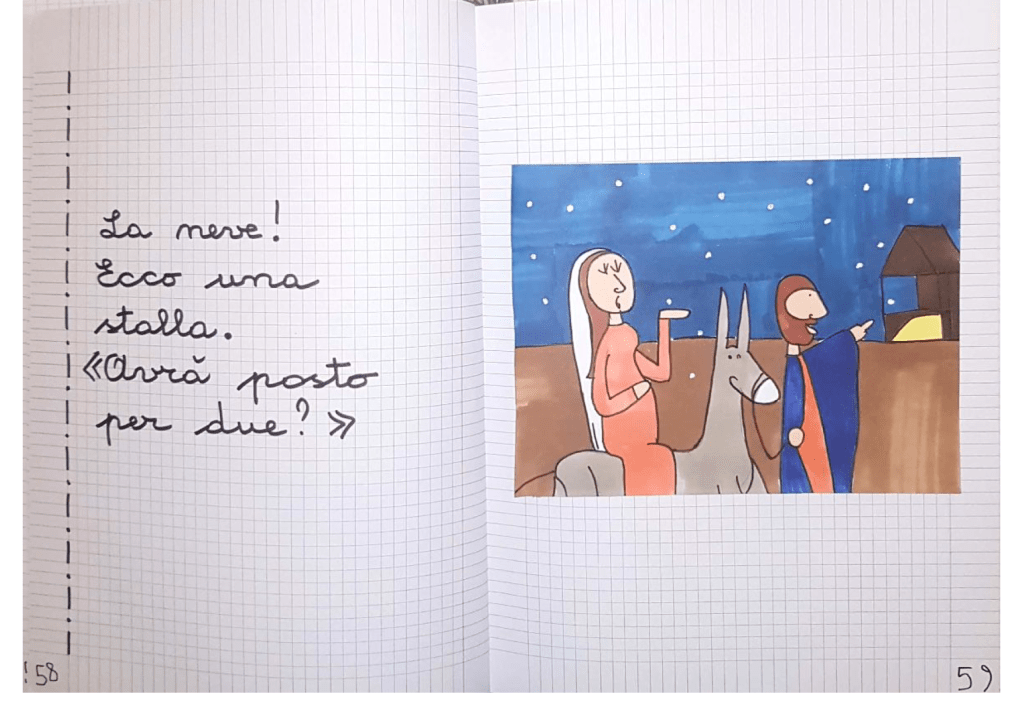 La neve!
Ecco una
stalla.
«Avrà posto
per due?»
58
59